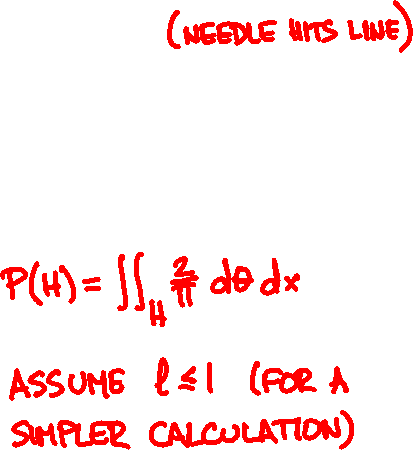 (NEEDLE HITS LINE)
P(H) = ∬_H 2/π dθ dx
ASSUME ℓ ≤ 1 (FOR A
SIMPLER CALCULATION)